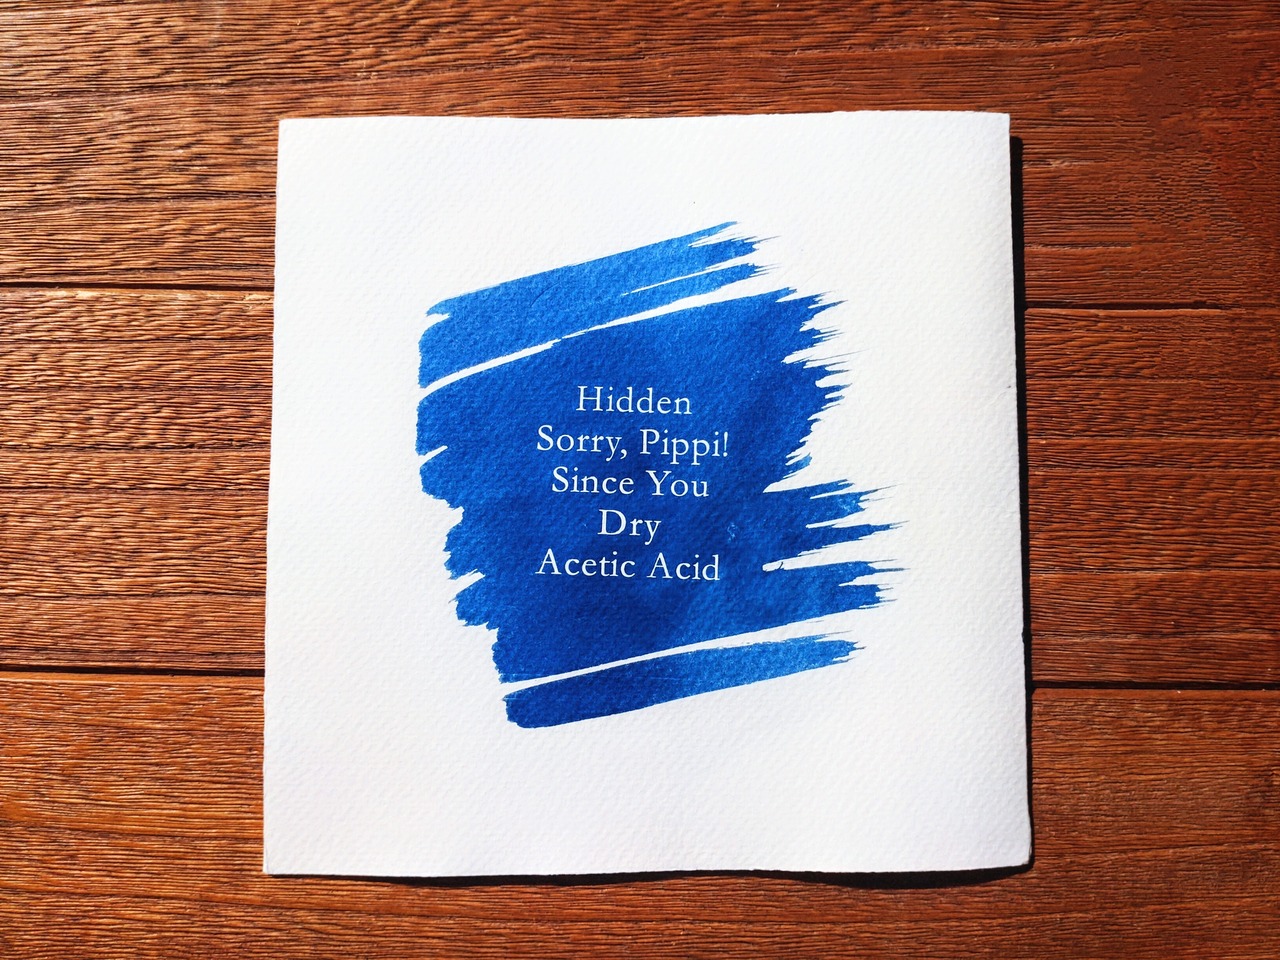 Hidden
Sorry, Pippi!
Since You
Dry
Acetic Acid